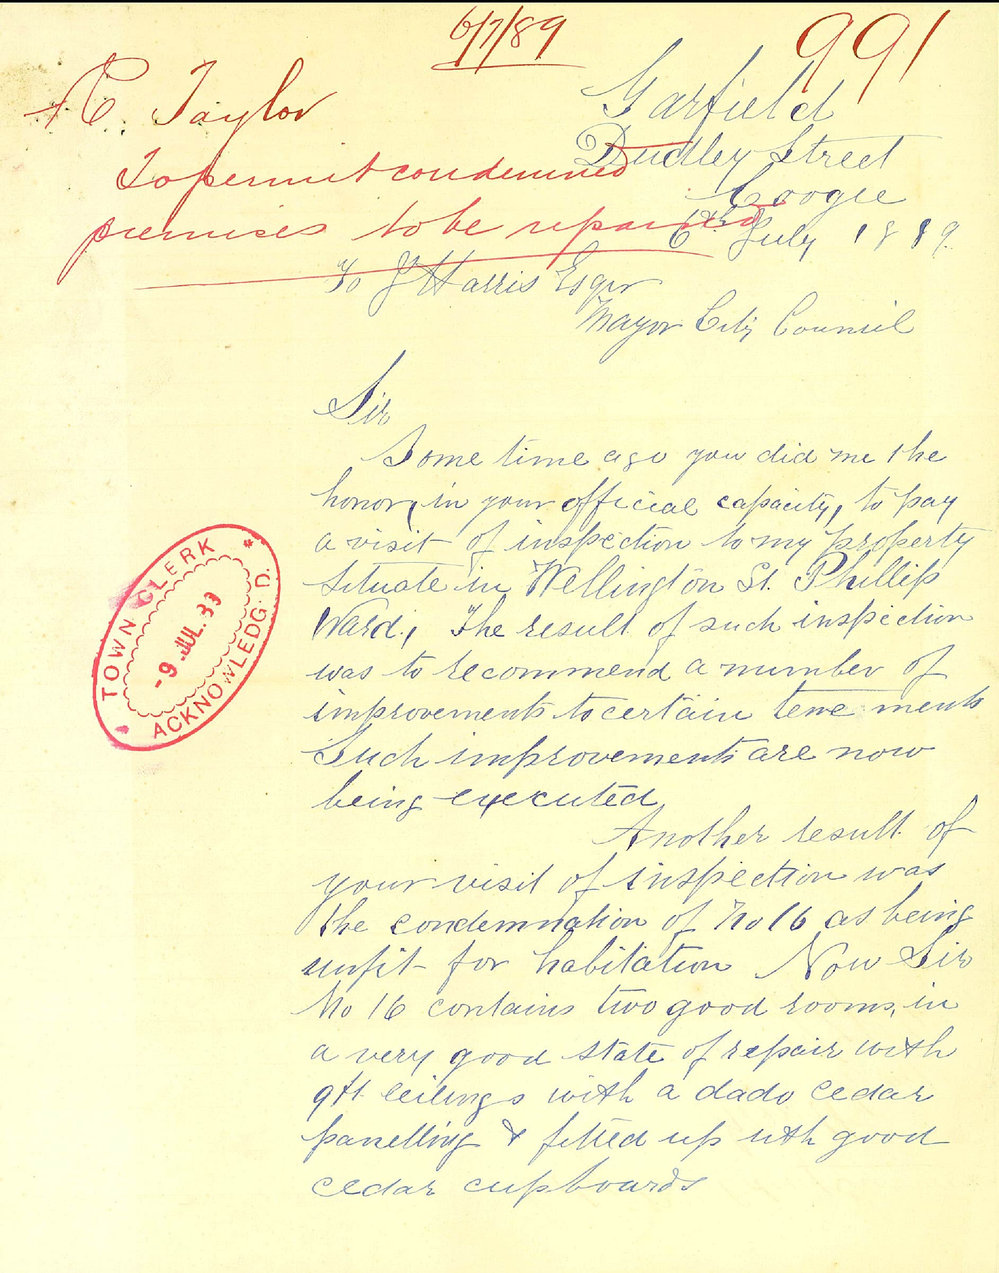 6/7/89
991
A. Taylor
To permit condemned
premises to be repaired
Garfield
Dudley Street
Coogee
6th July 1889
To J Harris Esqr
Mayor City Council
Sir
Some time ago you did me the
honor, in your official capacity, to pay
a visit of inspection to my property
situate in Wellington St. Phillip
Ward., The result of such inspection
was to recommend a number of
improvements to certain tene ments
Such improvements are now
being executed
Another result of
your visit of inspection was
the condemnation of No 16 as being
unfit for habitation Now Sir
No 16 contains two good rooms, in
a very good state of repair with
9ft ceilings with a dado cedar
panelling & fitted up with good
cedar cupboards
TOWN CLERK
-9. JUL. 89
ACKNOWLEDG. D.